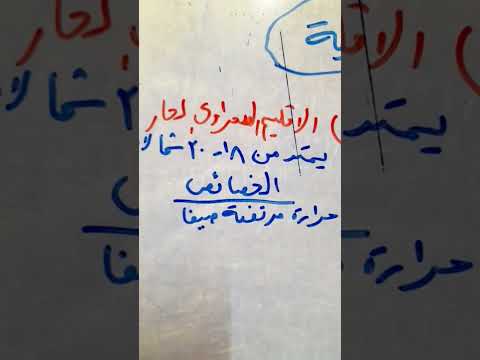 ية
) الاقليم الصحراوي الحار
يمتد من ١٨ - ٣٠ شمالا
الخصائص
حرارة مرتفعة صيفا